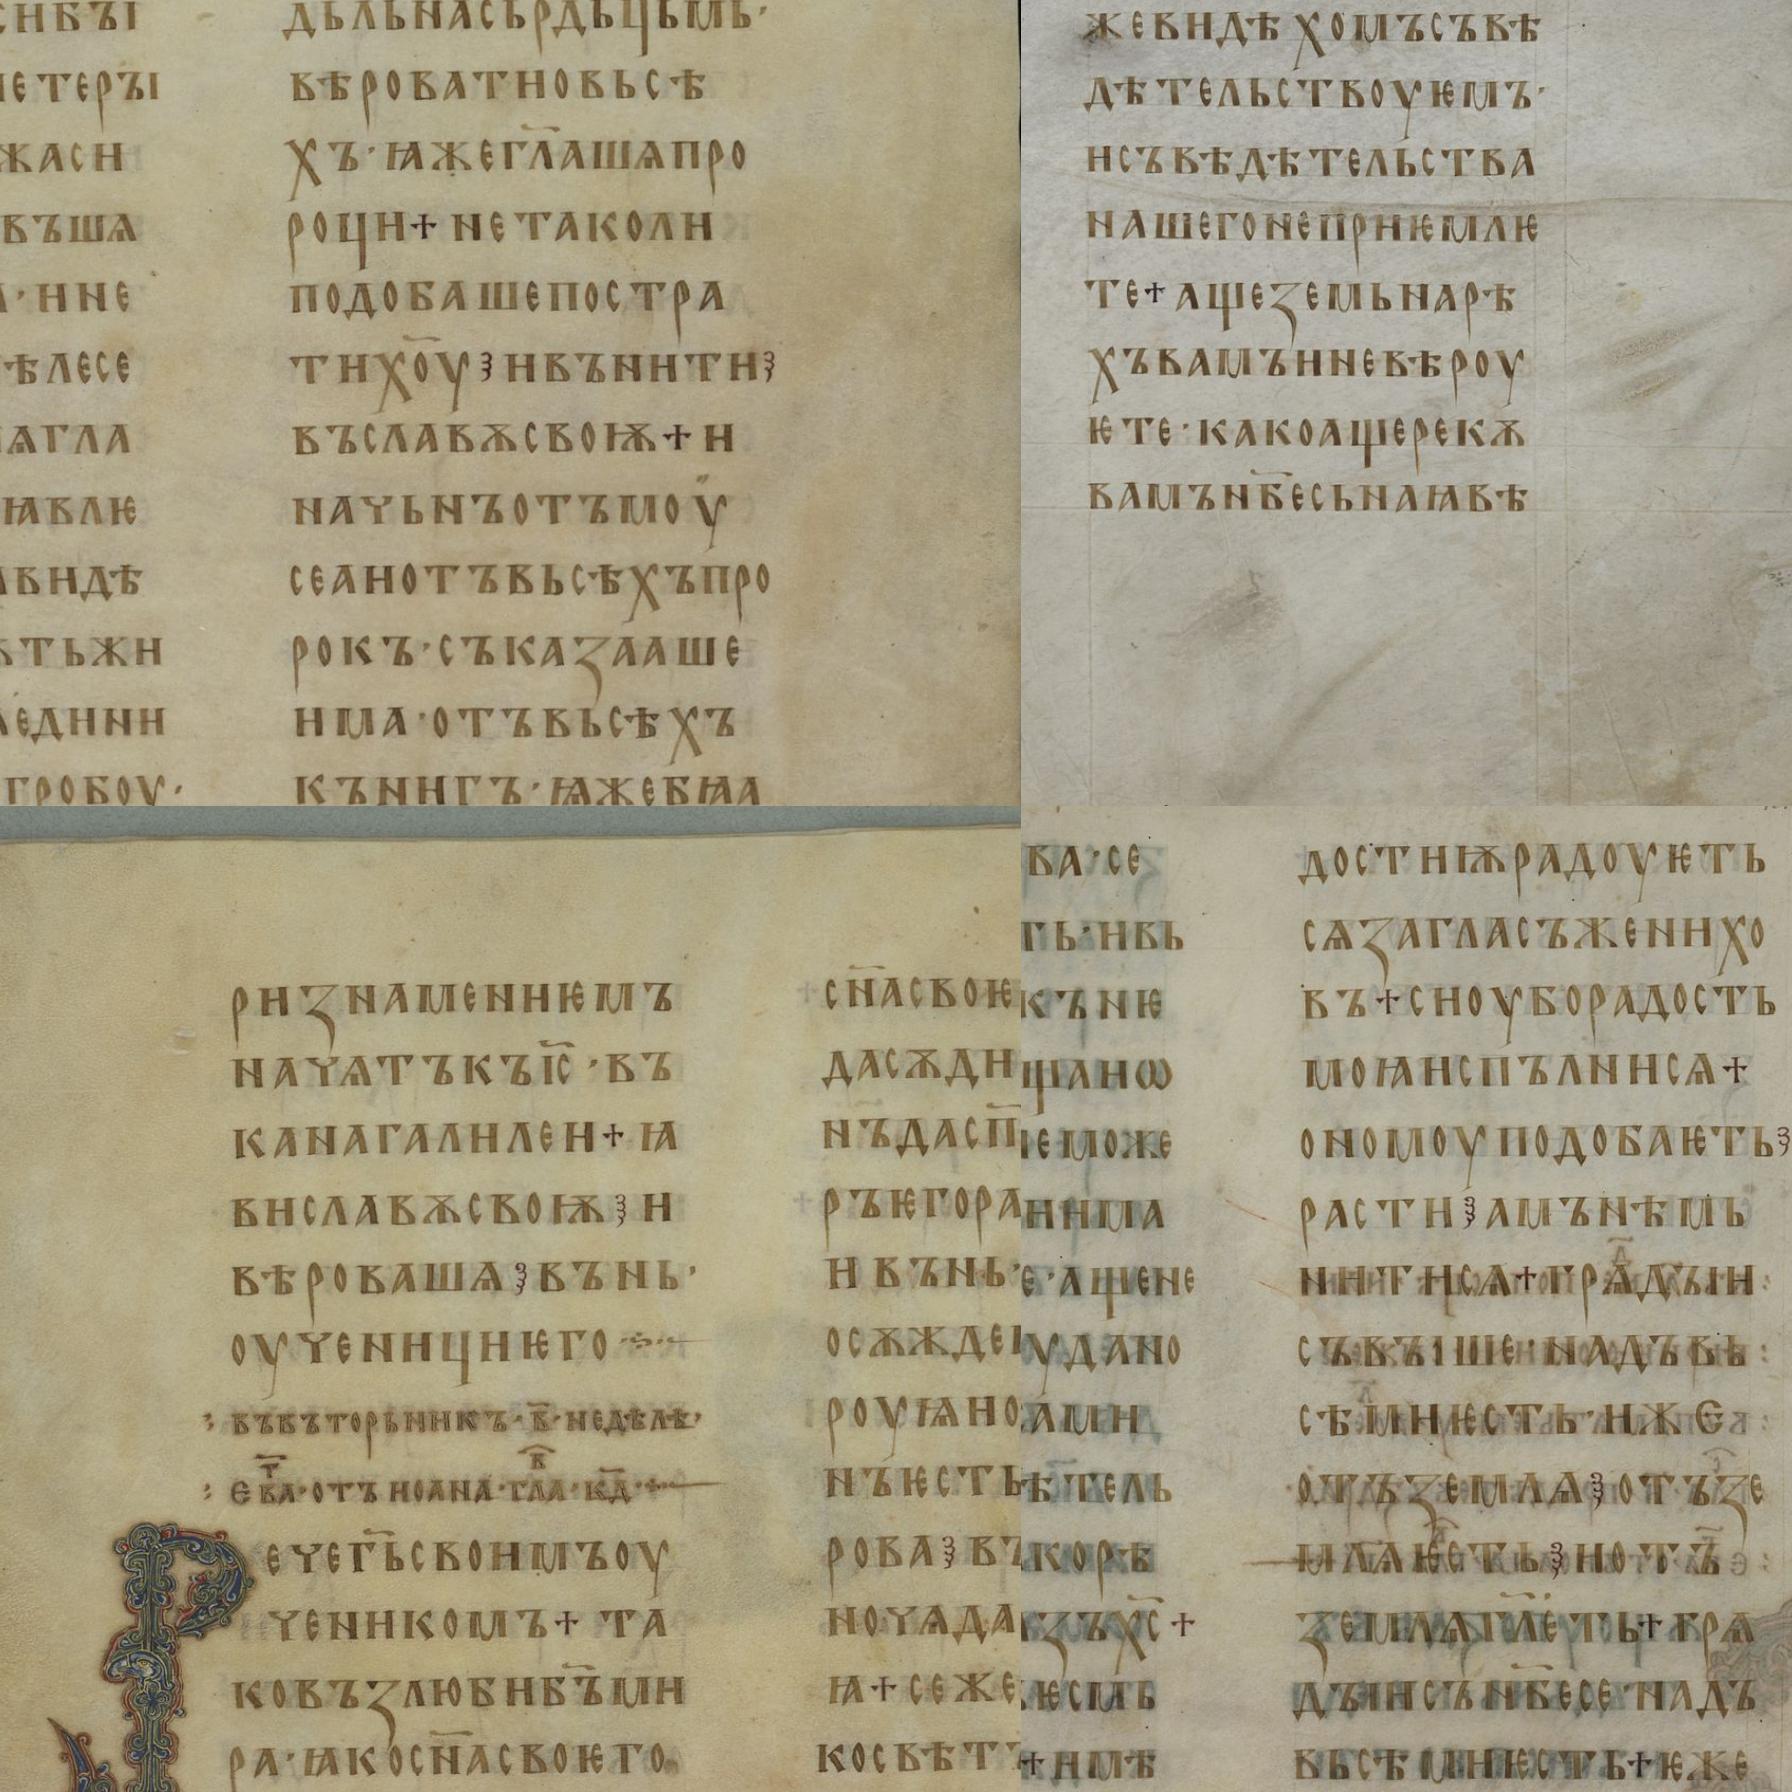 снбъі
етеръі
жасн
въшѧ
нне
ѣлесе
ѧгла
ꙗвлю
вндѣ
тьжн
еднин
гробоу·
дьльнасьрдьцьмь·
вѣроватновьсѣ
хъ·ꙗжегл҃ашѧпро
роцн+нетаколн
подобашепостра
тнхо҃уꙁнвъннтнꙁ
въславѫсвоѭ+н
наүьнъотъмоѵ
сеанотъвьсѣхъпро
рокъ·съказааше
нма·отъвьсѣхъ
кънигъ·ꙗжебѣа
жевндѣхомъсъвѣ
дѣтельствоуюмъ·
нсъвѣдѣтельства
нашегонепрнѥмлѥ
те+ащеземьнарѣ
хъвамъннеевѣроу
ѥте·какоащерекѫ
вамън҃бесьнаꙗвѣ
рнзнаменнѥмъ
наүѧтъкъі҃с·въ
канагалнлен+ꙗ
внславѫсвоѭꙁн
вѣровашѧꙁвънь·
оуүеннцнѥго
въвъторьннкъ·в҃·недѣлѣ·
ева·отъноана·гла·кд҃·
Реүег҃ьсвонмъоу
үеннкомъ+та
ковъзлюбнб҃ъмн
ра·ꙗкос҃насвоѥго
с҃насвоѥ
дасѫдн
нъдасп҃
ръѥгора
нвънь·
осѫжде
роуꙗно
нъѥсть
роваꙁвъ
ноүѧда
ꙗ+сеже
косвѣт
ва·се
ть·нвь
къню
щанѡ
еможе
ннма
е·ащене
удано
амн
ѣтель
корѣ
зъх҃с+
ѥсмь
+нмѣ
достнѭрадоуѥть
сѧзагласъженнхо
въ+сноуборадость
моꙗнспълннсѧ+
ономоуподобаѥтьꙁ
растнꙁамънѣмь
ннтнсѧ+грѧдъін
съвъіше·надъвь
сѣмнѥсть·нже
отъземлѧꙁотъзе
млѧѥстьꙁнотъ
землѧгл҃еть+грѧ
дъінсън҃бесе·надъ
вьсѣмнѥсть+ѥже